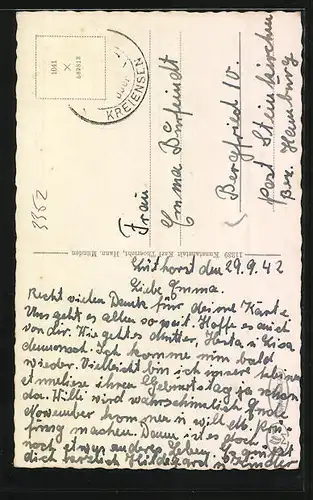 1041
X
682813
KREIENSEN
3352
Frau
Emma Burfeindt
Bergfried 10
Post Steinkirchen
Bez. Hamburg
11339 Kunstanstalt Karl Thoericht, Hann. Münden
den 29.9.42
Liebe Emma.
Recht vielen Dank für deine Karte.
Uns geht es allen soweit. Hoffe es auch
von dir. Wie geht es Mutter, Herta, u. Lisa
dennoch ich komme nun bald
wieder. Vielleicht bin ich unsere
ihren Geburtstag ja schon
da. Willi wird wahrscheinlich Ende
November kommen u. will
machen. Dann ist es doch
noch etwas anders Leben. Es grüsst
dich herzlich Hildegard u. Kinder